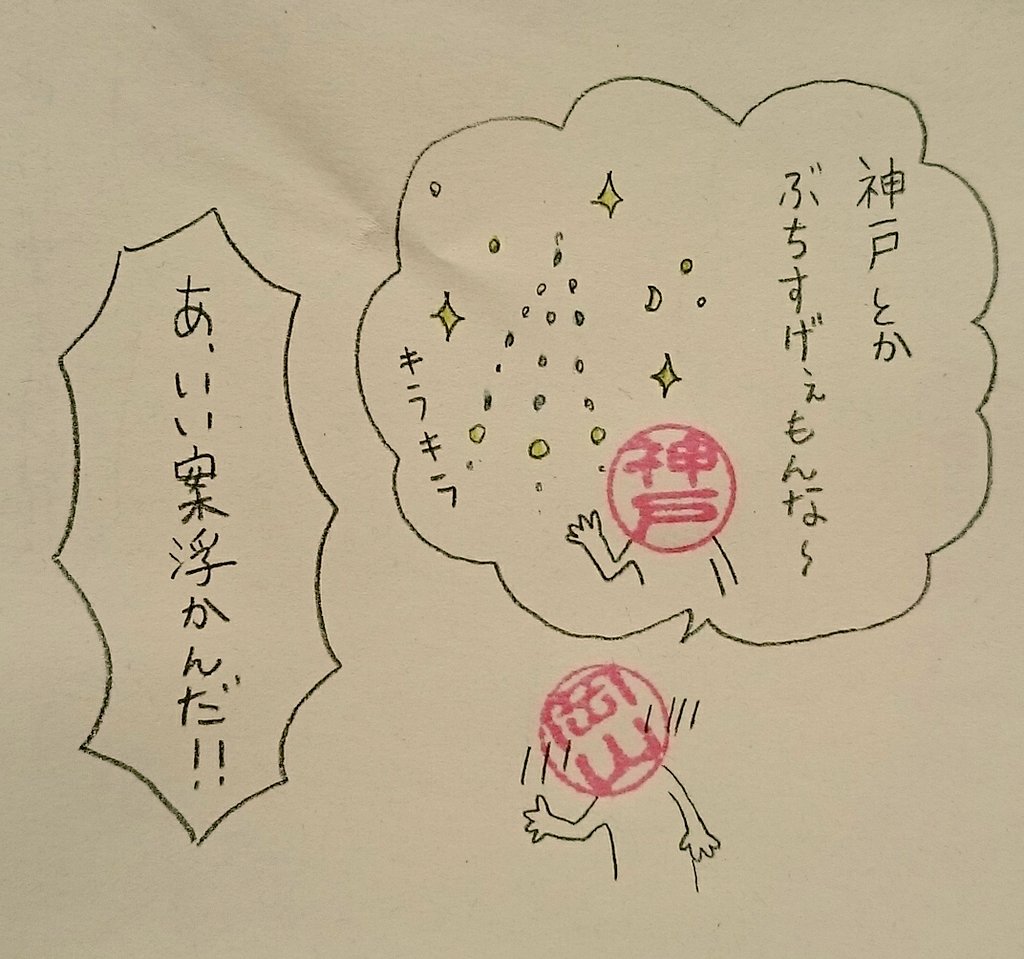 神戸とか
ぶちすげぇもんな〜
キラキラ
神戸
岡山
あ、いい案浮かんだ!!